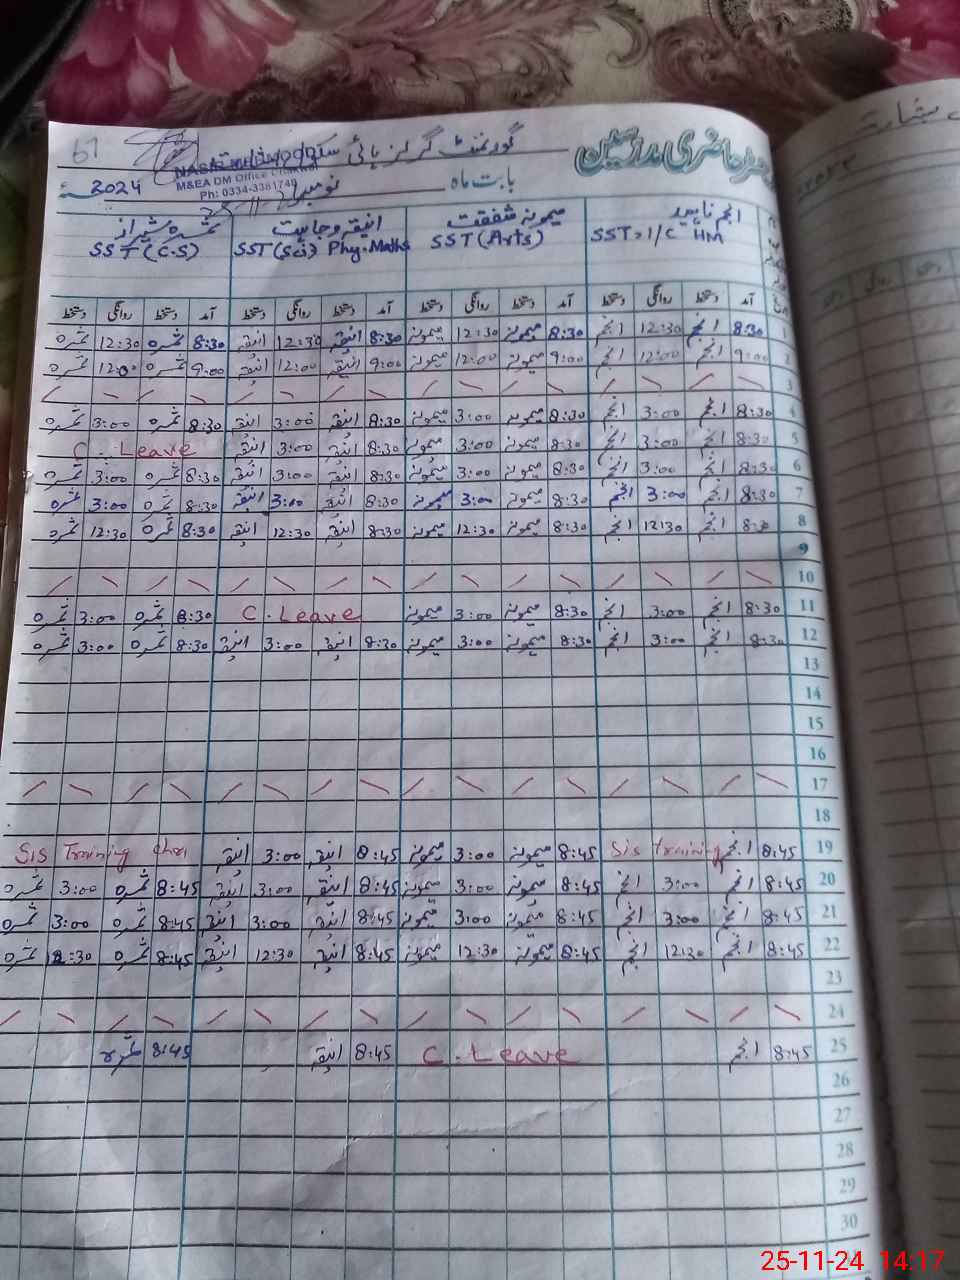 67
گورنمنٹ گرلز ہائی سکول
حاضری مدرسین
M&EA DM Office Chakwal
Ph: 0334-3381740
بابت ماہ نومبر 2024ء
انجم ناہید میمونہ شفقت انیقہ وجاہت ثمرہ شیراز
SST, I/C HM SST (Arts) SST (Sci) Phy-Maths SST (C.S)
آمد دستخط روانگی دستخط آمد دستخط روانگی دستخط آمد دستخط روانگی دستخط آمد دستخط روانگی دستخط
1 8:30 انجم 12:30 انجم 8:30 میمونہ 12:30 میمونہ 8:30 انیقہ 12:30 انیقہ 8:30 ثمرہ 12:30 ثمرہ
2 9:00 انجم 12:00 انجم 9:00 میمونہ 12:00 میمونہ 9:00 انیقہ 12:00 انیقہ 9:00 ثمرہ 12:00 ثمرہ
3
4 8:30 انجم 3:00 انجم 8:30 میمونہ 3:00 میمونہ 8:30 انیقہ 3:00 انیقہ 8:30 ثمرہ 3:00 ثمرہ
5 8:30 انجم 3:00 انجم 8:30 میمونہ 3:00 میمونہ 8:30 انیقہ 3:00 انیقہ C. Leave
6 8:30 انجم 3:00 انجم 8:30 میمونہ 3:00 میمونہ 8:30 انیقہ 3:00 انیقہ 8:30 ثمرہ 3:00 ثمرہ
7 8:30 انجم 3:00 انجم 8:30 میمونہ 3:00 میمونہ 8:30 انیقہ 3:00 انیقہ 8:30 ثمرہ 3:00 ثمرہ
8 8:30 انجم 12:30 انجم 8:30 میمونہ 12:30 میمونہ 8:30 انیقہ 12:30 انیقہ 8:30 ثمرہ 12:30 ثمرہ
9
10
11 8:30 انجم 3:00 انجم 8:30 میمونہ 3:00 میمونہ C. Leave 8:30 ثمرہ 3:00 ثمرہ
12 8:30 انجم 3:00 انجم 8:30 میمونہ 3:00 میمونہ 8:30 انیقہ 3:00 انیقہ 8:30 ثمرہ 3:00 ثمرہ
13
14
15
16
17
18
19 8:45 انجم Sis training 8:45 میمونہ 3:00 میمونہ 8:45 انیقہ 3:00 انیقہ Sis Training
20 8:45 انجم 3:00 انجم 8:45 میمونہ 3:00 میمونہ 8:45 انیقہ 3:00 انیقہ 8:45 ثمرہ 3:00 ثمرہ
21 8:45 انجم 3:00 انجم 8:45 میمونہ 3:00 میمونہ 8:45 انیقہ 3:00 انیقہ 8:45 ثمرہ 3:00 ثمرہ
22 8:45 انجم 12:30 انجم 8:45 میمونہ 12:30 میمونہ 8:45 انیقہ 12:30 انیقہ 8:45 ثمرہ 12:30 ثمرہ
23
24
25 8:45 انجم C. Leave 8:45 انیقہ 8:45 ثمرہ
26
27
28
29
30
25-11-24 14:17